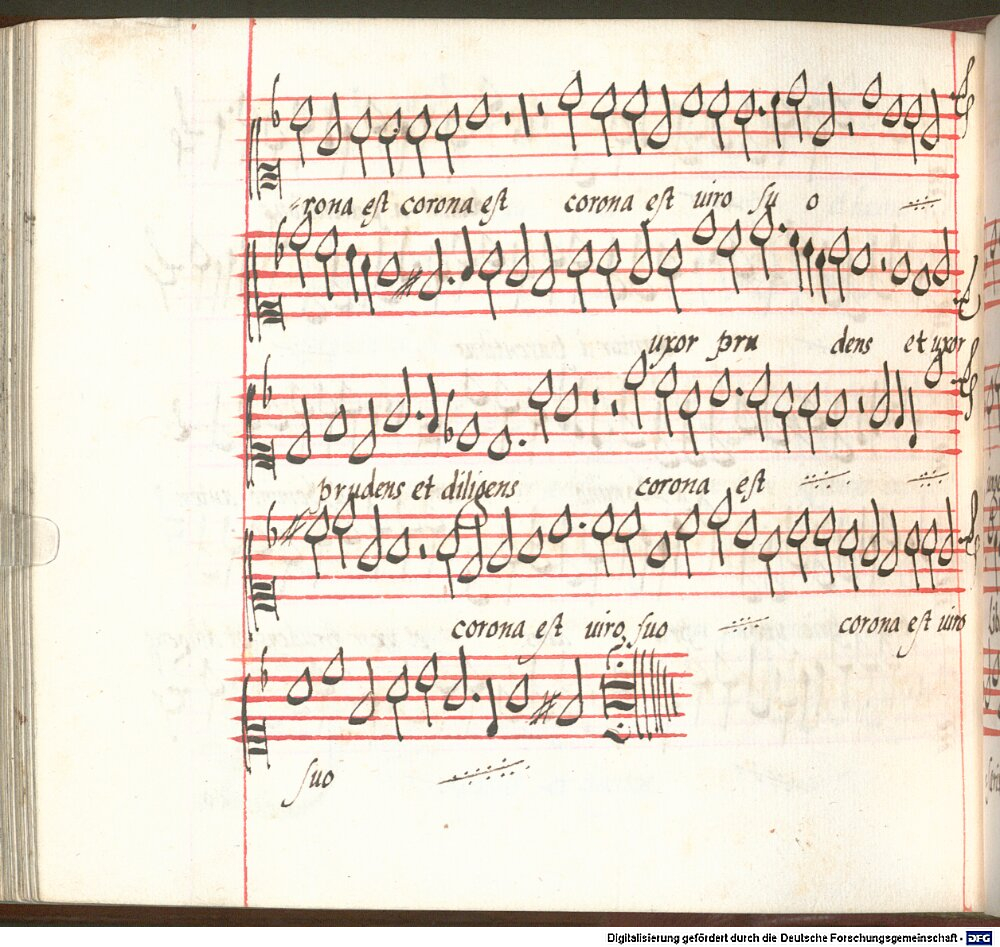 -rona eſt corona eſt corona eſt uiro ſu o
uxor pru dens et uxor
prudens et diligens corona eſt
corona eſt uiro ſuo corona eſt uiro
ſuo
Digitalisierung gefördert durch die Deutsche Forschungsgemeinschaft - DFG